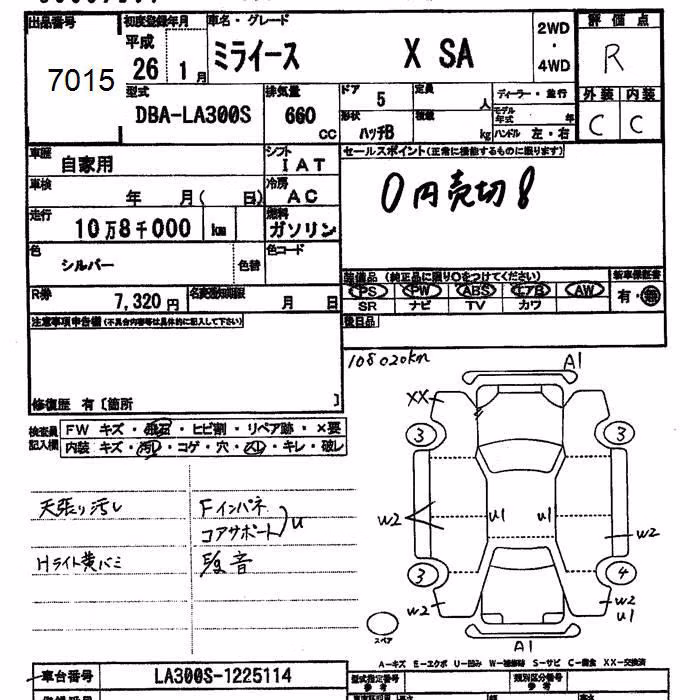 出品番号 初度登録年月 車名・グレード 2WD・4WD 評価点
7015 平成 26 1月 ミライース X SA R
型式 排気量 ドア 定員 ディーラー・並行 外装 内装
DBA-LA300S 660 CC 5 人 モデル年式 年 C C
形状 ハッチB 積載 kg ハンドル 左・右
車歴 自家用 シフト IAT セールスポイント(正常に機能するものに限ります)
車検 年 月( 日) 冷房 AC 0円売切8
走行 10万8千000 km 燃料 ガソリン
色 シルバー 色替 色コード
装備品 (純正品に限り○をつけてください) 新車保証書
PS PW ABS エアB AW 有・無
SR ナビ TV カワ
R券 7,320円 名変期限 月 日
後日品
注意事項申告欄(不具合内容等は具体的に記入して下さい)
108020km
修復歴 有〔箇所 〕
検査員記入欄 FW キズ・飛石・ヒビ割・リペア跡・×要
内装 キズ・汚レ・コゲ・穴・スレ・キレ・破レ
A1
XX
3 3
天張り汚レ Fインパネ
コアサポート U
W2 U1 U1 W2
Hライト黄バミ
音
3 4
W2 W2
U1
スペア
A1
A-キズ E-エクボ U-凹み W-補修跡 S-サビ C-腐食 XX-交換済
車台番号 LA300S-1225114 型式指定番号 参考 類別区分番号 参考